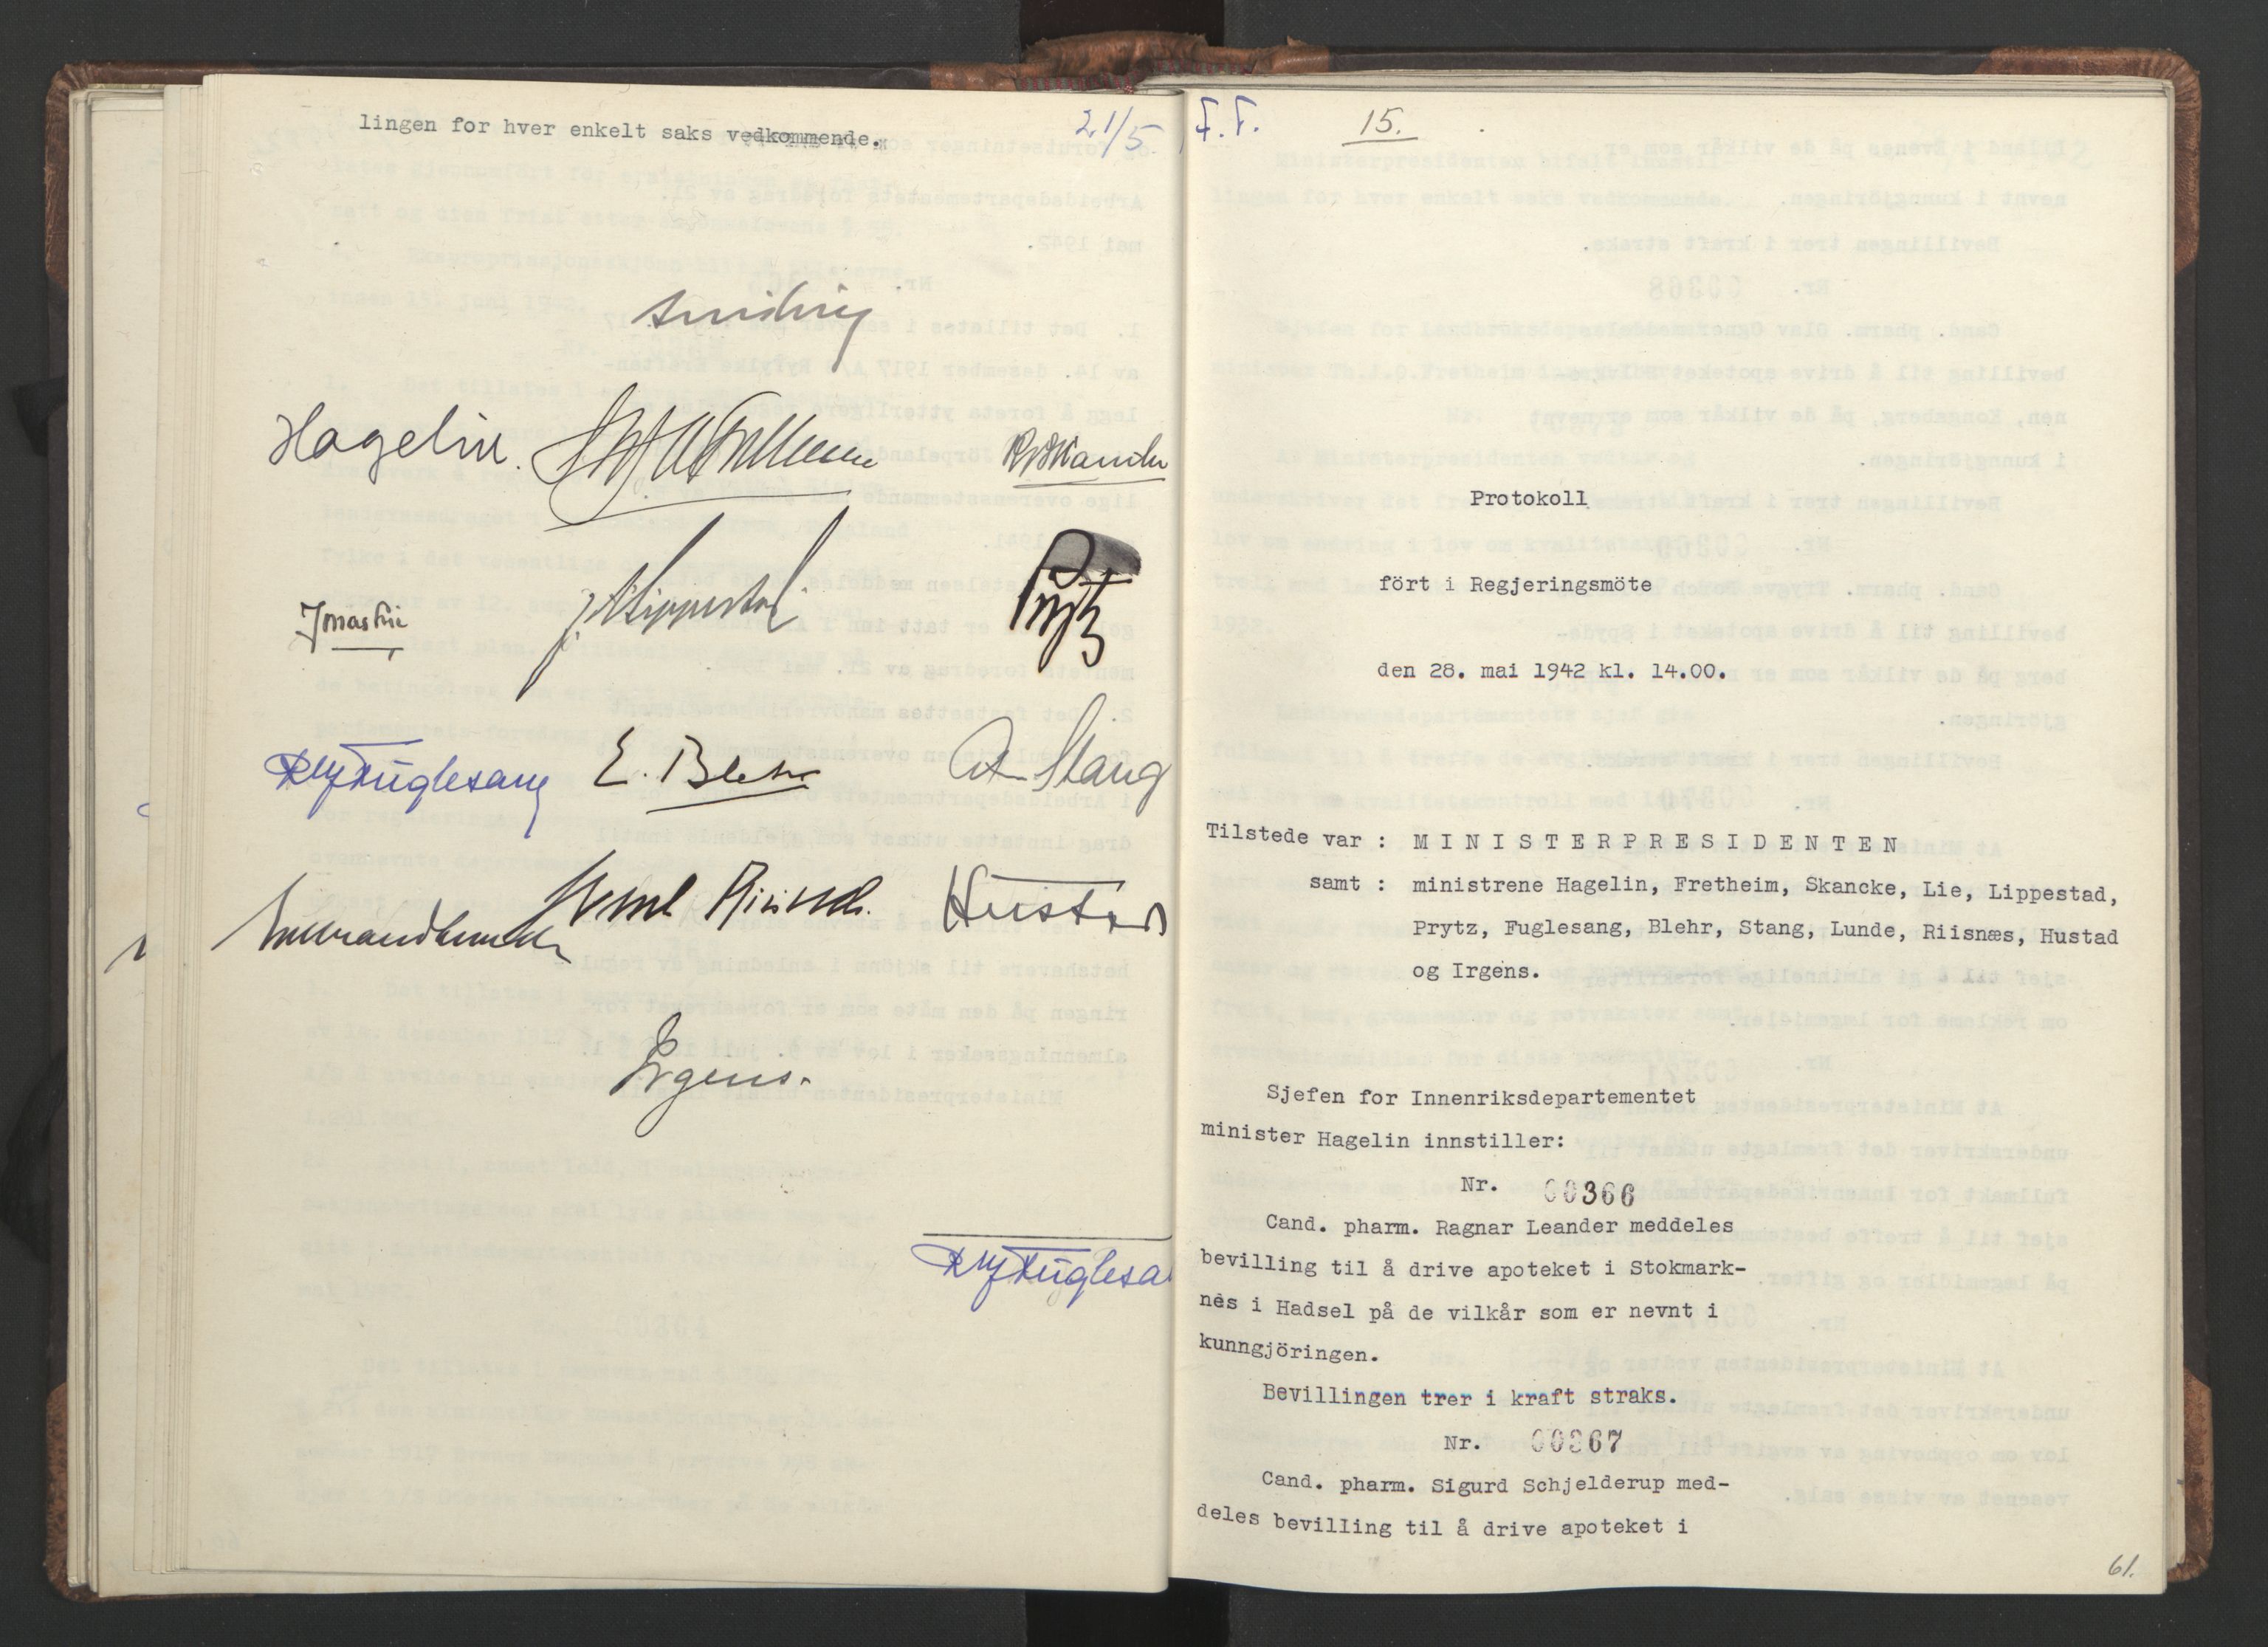 lingen for hver enkelt saks vedkommende.
21/5
Quisling
Hagelin.
R Skancke
Jonas Lie
J Lippestad
Prytz
R J Fuglesang
E. Blehr
A Stang
Gulbrand Lunde
Sverre Riisnæs.
Hustad
Irgens.
R J Fuglesa
F.F.
15.
Protokoll
fört i Regjeringsmöte
den 28. mai 1942 kl. 14.00.
Tilstede var : M I N I S T E R P R E S I D E N T E N
samt : ministrene Hagelin, Fretheim, Skancke, Lie, Lippestad,
Prytz, Fuglesang, Blehr, Stang, Lunde, Riisnæs, Hustad
og Irgens.
Sjefen for Innenriksdepartementet
minister Hagelin innstiller:
Nr. 00366
Cand. pharm. Ragnar Leander meddeles
bevilling til å drive apoteket i Stokmark-
nes i Hadsel på de vilkår som er nevnt i
kunngjöringen.
Bevillingen trer i kraft straks.
Nr. 00367
Cand. pharm. Sigurd Schjelderup med-
deles bevilling til å drive apoteket i
61.